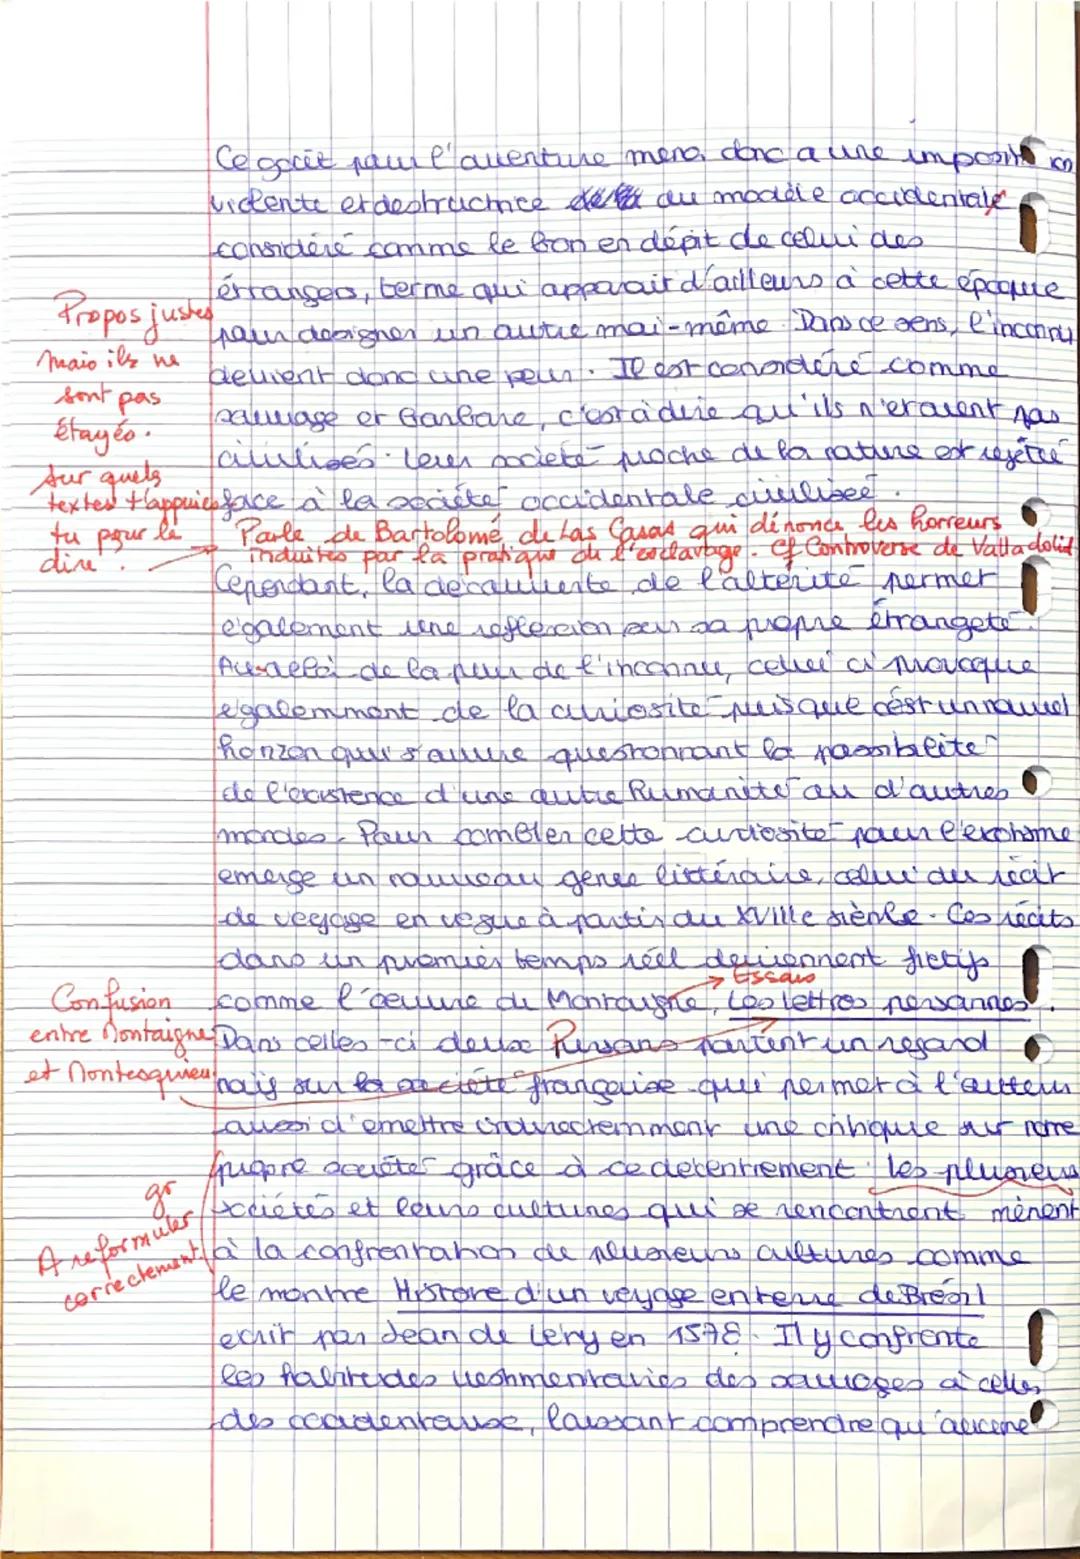 Ce goût pour l'aventure mena donc a une imposition
violente et destructrice du modèle occidentale
considéré comme le bon en dépit de celui des
étrangers, terme qui apparait d'ailleurs à cette époque
pour designer un autre moi-même. Dans ce sens, l'inconnu
devient donc une peur. Il est considéré comme
sauvage et barbare, c'est à dire qu'ils n'étaient pas
civilisés. Leur societé proche de la nature est rejeté
face à la société occidentale civilisée.
Propos justes
mais ils ne
sont pas
étayés.
Sur quels
textes t'appuies
tu pour le
dire ?
Parle de Bartolomé de Las Casas qui dénonce les horreurs
induites par la pratique de l'esclavage. Cf Controverse de Valladolid
Cependant, la découverte de l'altérité permet
également une reflexion sur sa propre étrangeté.
Au-delà de la peur de l'inconnu, celui ci provoque
égalemment de la curiosité puisque c'est un nouvel
horizon qui s'ouvre questionnant la possibilité
de l'existence d'une autre humanité ou d'autres
mondes. Pour combler cette curiosité pour l'exotisme
emerge un nouveau genre littéraire, celui du récit
de voyage en vogue à partir du XVIIIe siècle. Ces récits
dans un premier temps réel deviennent fictifs
→ Essais
comme l'oeuvre de Montaigne, Les lettres persannes.
Confusion
entre Montaigne
et Montesquieu
Dans celles-ci deux Persans portent un regard
naïf sur la société française qui permet à l'auteur
aussi d'emettre indirectemment une critique sur notre
propre société grâce à ce decentrement. Les plusieurs
sociétés et leurs cultures qui se rencontrent mènent
à la confrontation de plusieurs cultures comme
gr
A reformuler
correctement
le montre Histoire d'un voyage en terre de Brésil
ecrit par Jean de Léry en 1578. Il y confronte
les habitudes vestimentaires des sauvages à celles
des occidentaux, laissant comprendre qu'aucune